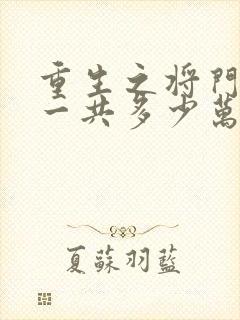 重生之将門
一共多少萬
夏蘇羽藍